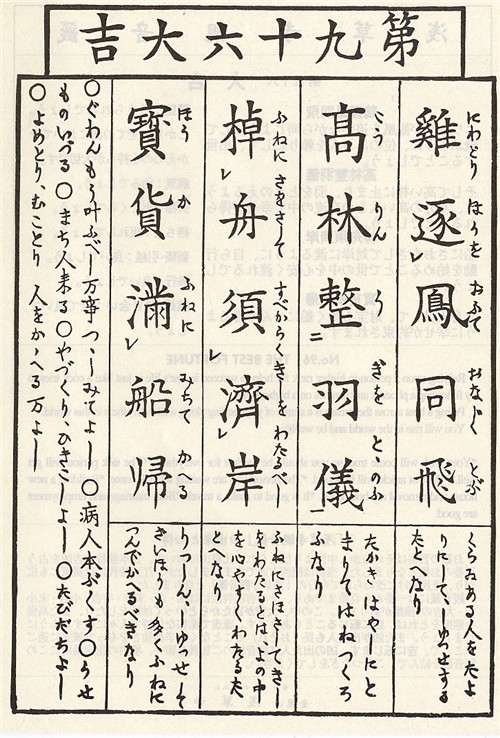 第九十六大吉
にわとり ほうを おふて おなじく とぶ
雞逐レ鳳同飛
くらゐある人をたよ
りにしてしゆつせする
たとへなり
こうりん うぎをとゝのふ
高林整二羽儀一
たかきはやしにと
まりてはねつくろ
ふなり
ふねに さほさして すべからくきしを わたるべし
棹レ舟須レ濟レ岸
ふねにさほさしてきし
をわたるとは、よの中
を心やすくわたるた
とへなり
ほうか ふねに みちて かへる
寶貨滿レ船帰
りつしんしゆつせして
ざいほうも多くふねに
つんでかへるべきなり
〇ぐわんもう叶ふべし 万事つゝしみてよし 〇病人本ぷくす〇うせ
ものいづる 〇まち人来る〇やづくり、ひきこしよし〇たびだちよし
〇よめとり、むことり 人をかゝへる万よし